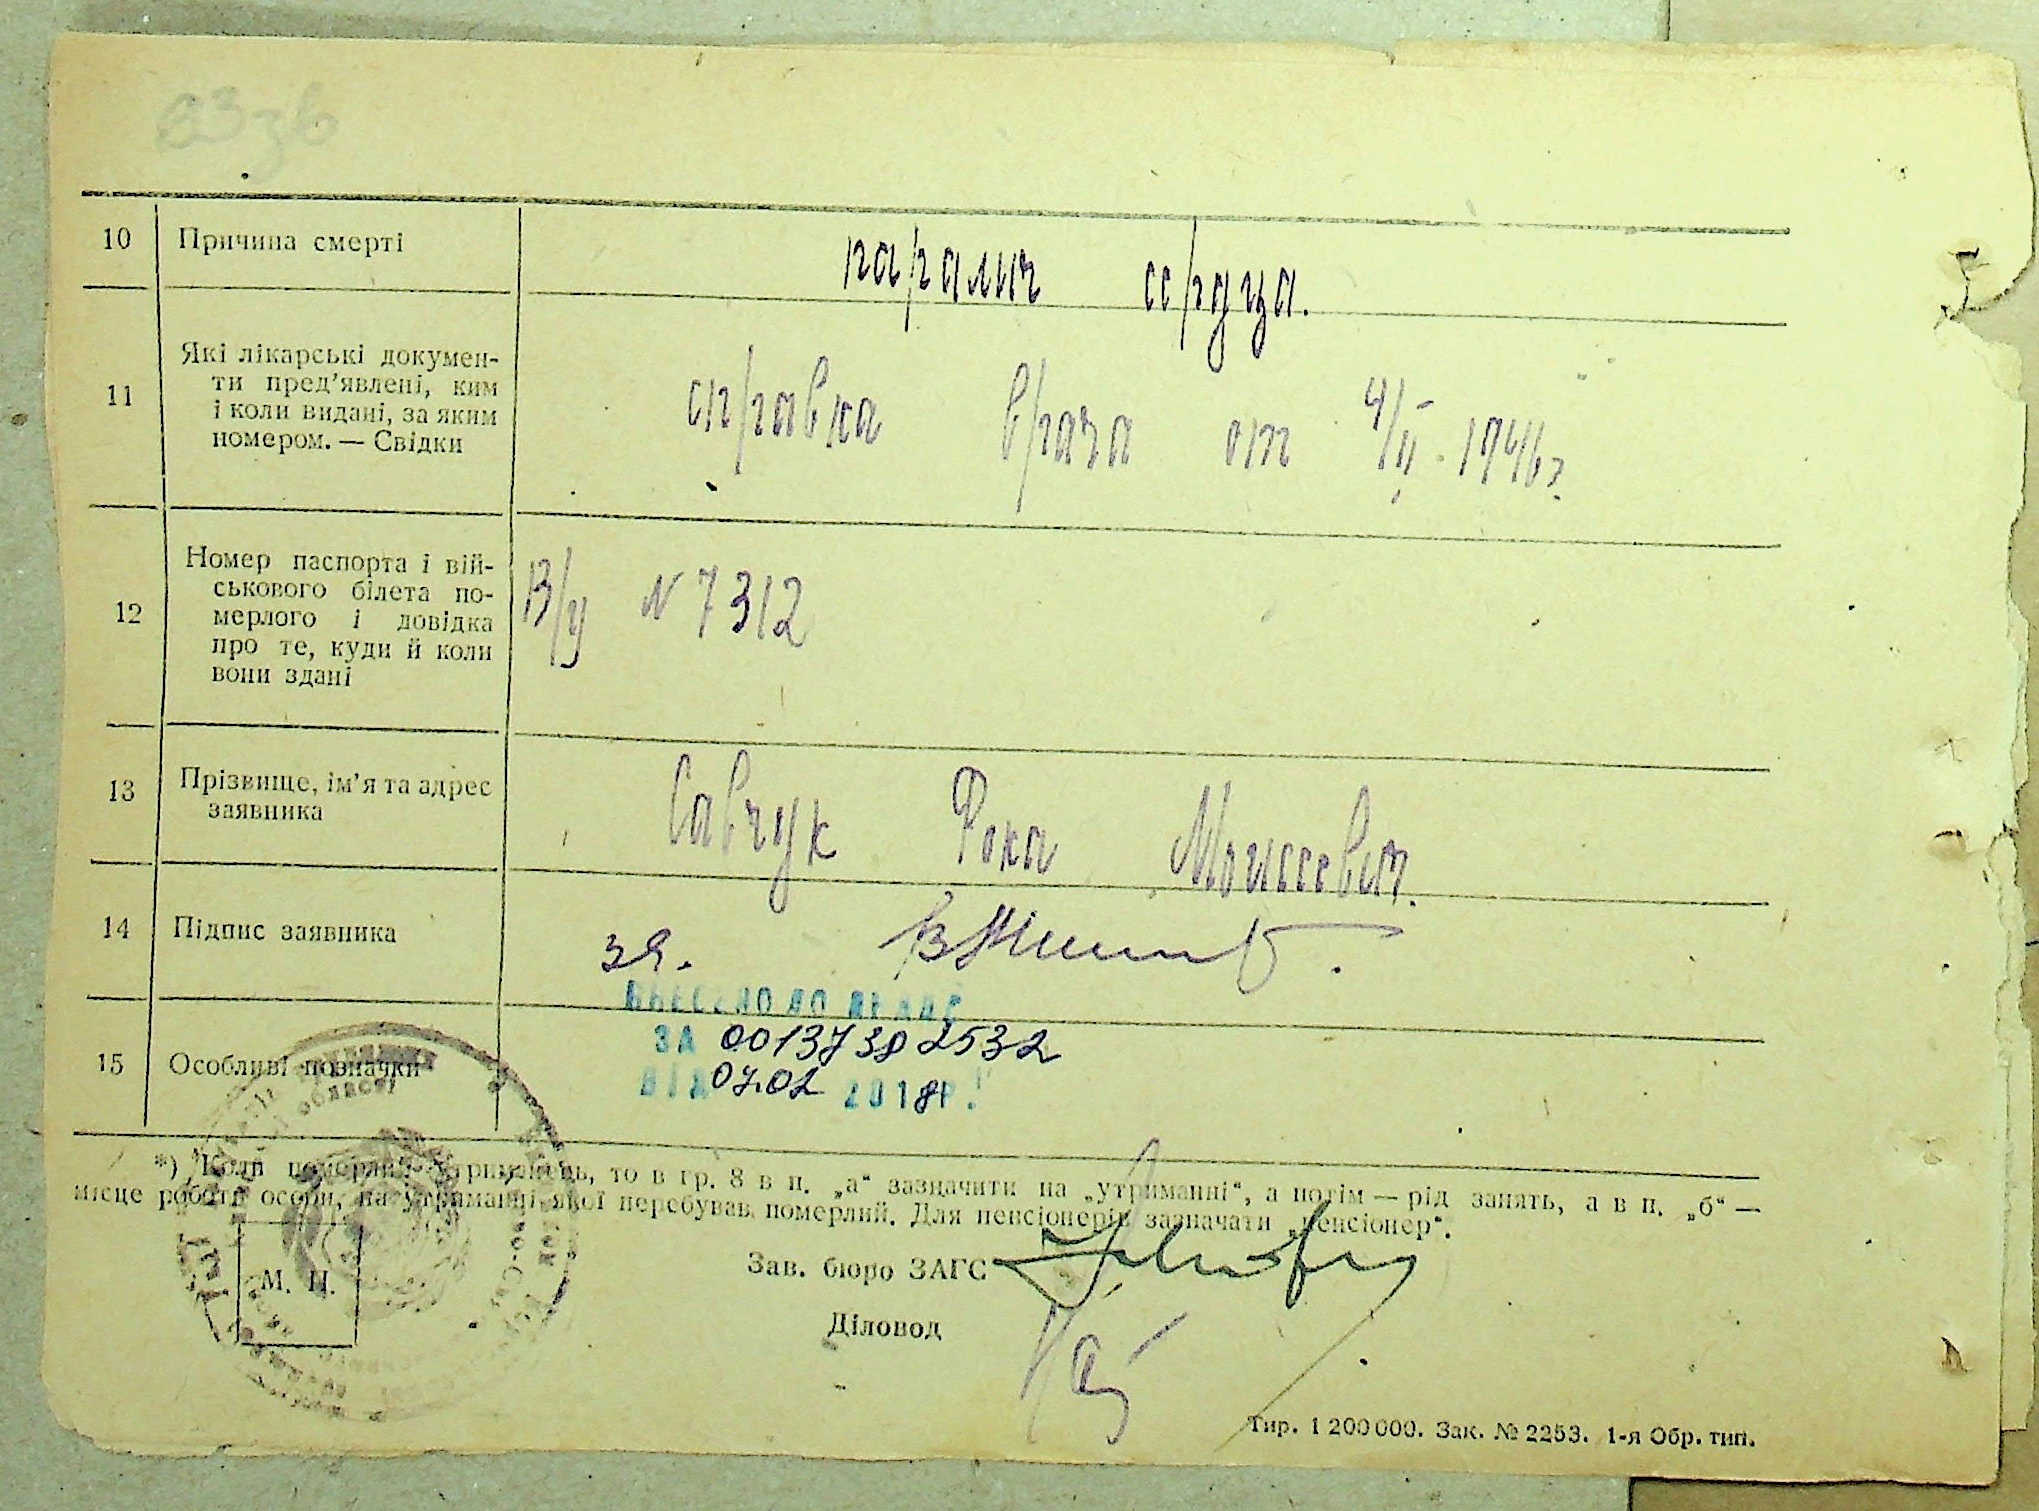 10 Причина смерті
паралич сердца.
11 Які лікарські докумен-
ти пред’явлені, ким
і коли видані, за яким
номером. — Свідки
справка врача от 4/II-1946г.
12 Номер паспорта і вій-
ськового білета по-
мерлого і довідка
про те, куди й коли
вони здані
В/у N 7312
13 Прізвище, ім’я та адрес
заявника
Савчук Фока Моисеевич.
14 Підпис заявника
за.
ВНЕСЕНО ДО ДРАЦС
ЗА 00137382532
ВІД 07.02 2018Р.
15 Особливі позначки
*) Коли померлий утриманець, то в гр. 8 в п. „а“ зазначити на „утриманні“, а потім — рід занять, а в п. „б“ —
місце роботи особи, на утриманні якої перебував померлий. Для пенсіонерів зазначати „пенсіонер“.
Зав. бюро ЗАГС
М. П.
Діловод
Тир. 1 200 000. Зак. № 2253. 1-я Обр. тип.